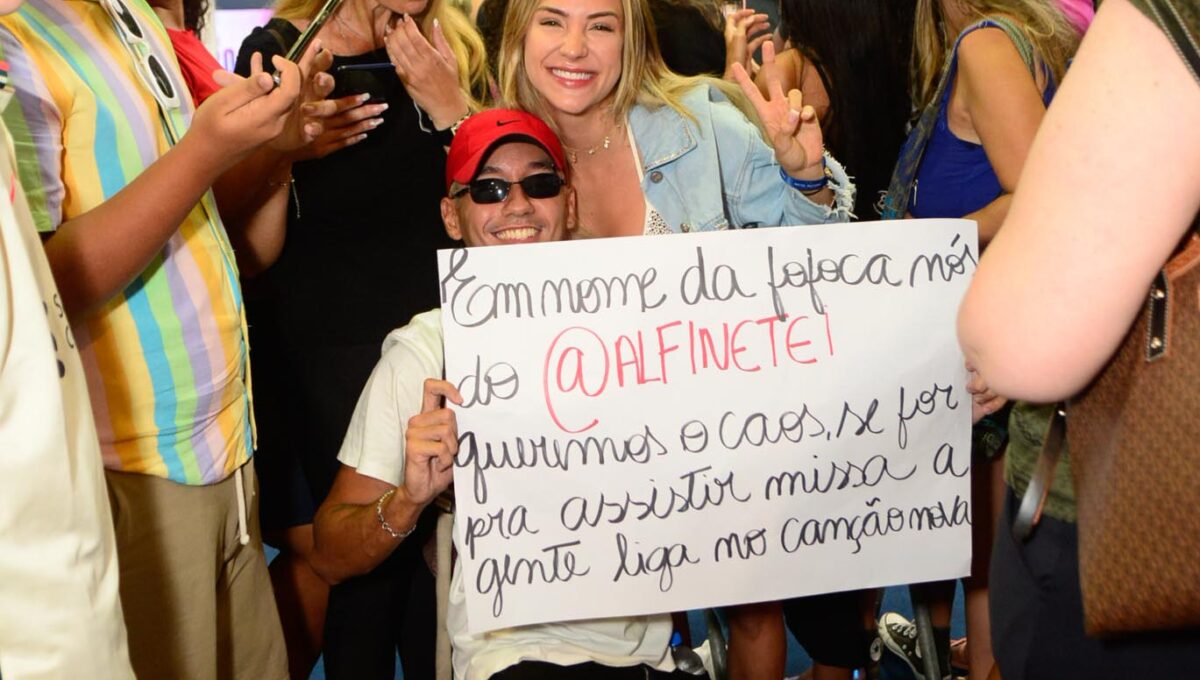 Em nome da fofoca nós
do @ALFINETEI
queremos o caos, se for
pra assistir missa a
gente liga no canção nova